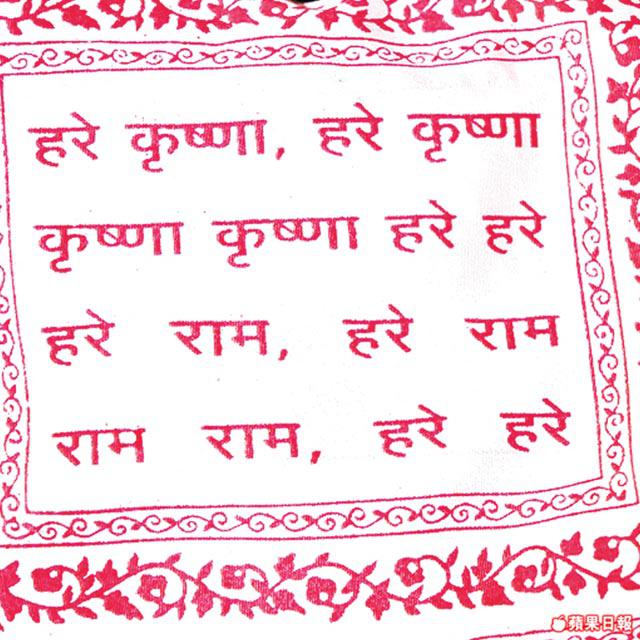 हरे कृष्णा, हरे कृष्णा
कृष्णा कृष्णा हरे हरे
हरे राम, हरे राम
राम राम, हरे हरे
蘋果日報